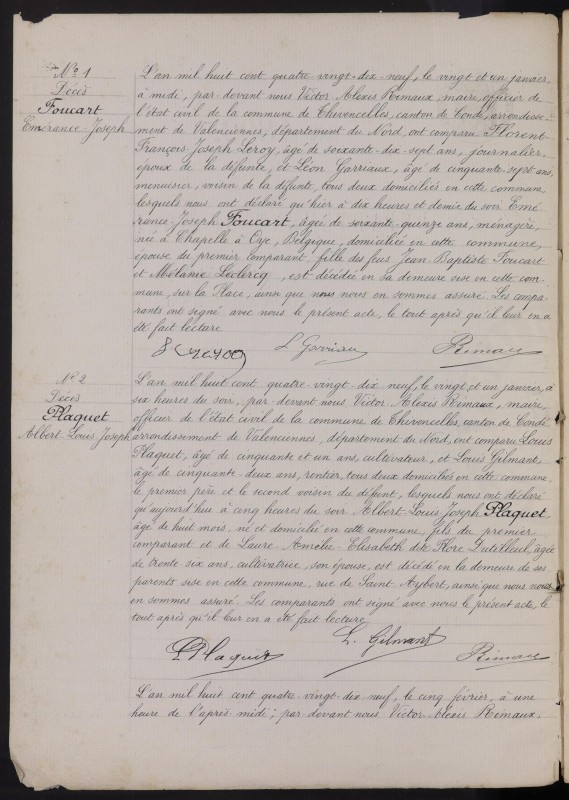 Nº 1
Décès
Foucart
Emérance-Joseph
L'an mil huit cent quatre-vingt-dix-neuf, le vingt et un janvier,
à midi, par devant nous Victor Alexis Rimaux, maire, officier de
l'état civil de la commune de Thivencelles, canton de Condé, arrondisse-
ment de Valenciennes, département du Nord, ont comparu Florent
François Joseph Leroy, âgé de soixante-dix-sept ans, journalier,
époux de la défunte, et Léon Garriaux, âgé de cinquante-sept ans,
menuisier, voisin de la défunte, tous deux domiciliés en cette commune,
lesquels nous ont déclaré qu'hier à dix heures et demie du soir Emé-
rance-Joseph Foucart, âgée de soixante-quinze ans, ménagère,
née à Chapelle à Oye, Belgique, domiciliée en cette commune,
épouse du premier comparant, fille des feus Jean Baptiste Foucart
et Mélanie Leclercq, est décédée en sa demeure sise en cette com-
mune, sur la Place, ainsi que nous nous en sommes assuré. Les compa-
rants ont signé avec nous le présent acte, le tout après qu'il leur en a
été fait lecture
L Garriau Rimaux
Nº 2
Décès
Plaquet
Albert Louis Joseph
L'an mil huit cent quatre-vingt-dix neuf, le vingt et un janvier, à
six heures du soir, par devant nous Victor-Alexis Rimaux, maire,
officier de l'état civil de la commune de Thivencelles, canton de Condé,
arrondissement de Valenciennes, département du Nord, ont comparu Louis
Plaquet, âgé de cinquante et un ans, cultivateur, et Louis Gilmant,
âgé de cinquante-deux ans, rentier, tous deux domiciliés en cette commune,
le premier père et le second voisin du défunt, lesquels nous ont déclaré
qu'aujourd'hui à cinq heures du soir Albert Louis Joseph Plaquet,
âgé de huit mois, né et domicilié en cette commune, fils du premier
comparant et de Laure-Amélie-Elisabeth dite Flore Dutilleul, âgée
de trente-six ans, cultivatrice, son épouse, est décédé en la demeure de ses
parents sise en cette commune, rue de Saint Aybert, ainsi que nous nous
en sommes assuré. Les comparants ont signé avec nous le présent acte, le
tout après qu'il leur en a été fait lecture
LPlaquet L. Gilmant Rimaux
L'an mil huit cent quatre-vingt-dix neuf, le cinq février, à une
heure de l'après-midi; par devant nous Victor-Alexis Rimaux,